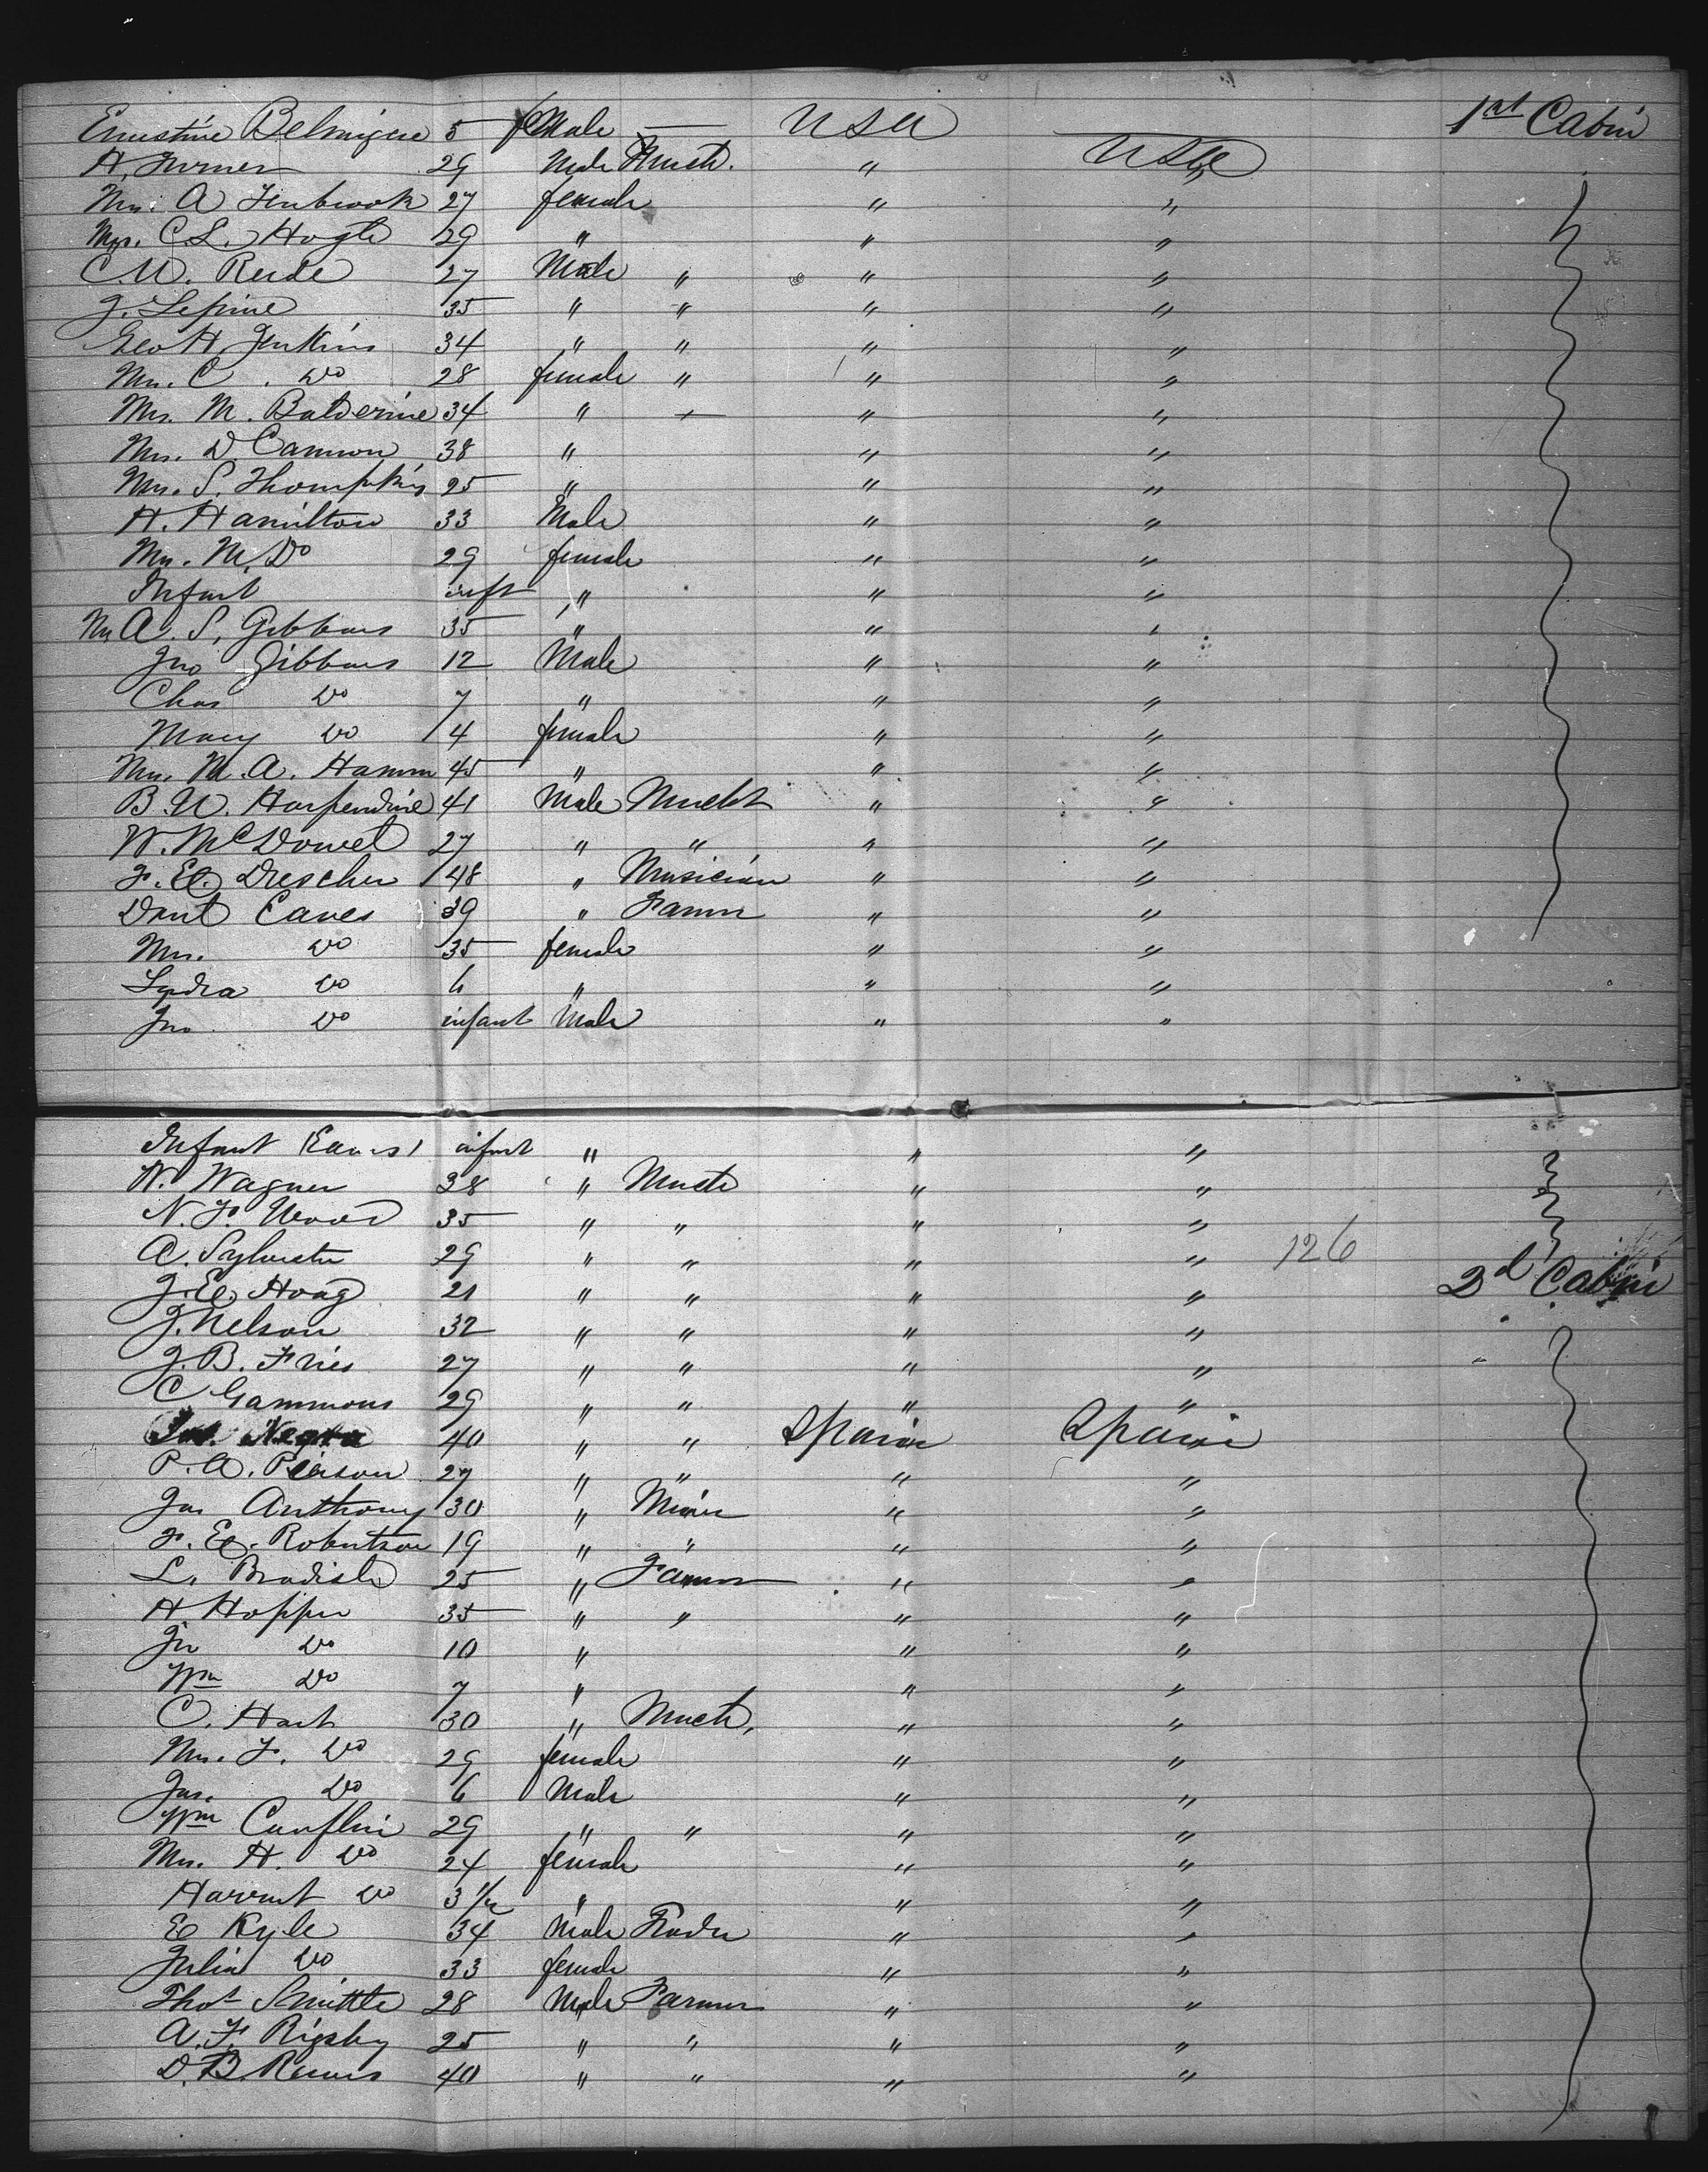 Ernestine Belmique 5 feMale — USA — 1st Cabin
H, Turner 29 Male Mercht. " USA
Mrs. A Tenbrook 27 female " "
Mrs. C. L. Hogle 29 " " "
C. W. Reide 27 Male " " "
J. Lepine 35 " " " "
Geo H Jenkins 34 " " " "
Mrs. C. Do 28 female " " "
Mrs. M. Balderine 34 " — " "
Mrs. D. Cannon 38 " " "
Mrs. S. Thompkins 25 " " "
H. Hamilton 33 Male " "
Mrs. M. Do 29 female " "
Infant inft " " "
Mrs A. S. Gibbons 35 " " "
Jno Gibbons 12 Male " "
Chas Do 7 " " "
Mary Do 4 female " "
Mrs. M. A. Hamm 45 " " "
B. W. Harpendine 41 Male Mercht " "
W. McDowel 27 " " " "
F. E. Drescher 48 " Musician " "
Danl Eaves 39 " Farmr " "
Mrs. Do 35 female " "
Lydia Do 6 " " "
Jno Do infant Male " "
Infant (Eaves) infant " " "
W. Wagner 38 " Mercht " "
N. F. Wood 35 " " " "
A. Sylvester 29 " " " " 126
J. E. Hoag 21 " " " " 2d Cabin
J. Nelson 32 " " " "
J. B. Fries 27 " " " "
C Gammons 29 " " " "
Negra 40 " " Spain Spain
P. A. Pierson 27 " " " "
Jas Anthony 30 " Miner " "
F. E. Robertson 19 " " " "
L. Bradish 25 " Farmr " "
H. Hopper 35 " " " "
Jn Do 10 " " "
Wm Do 7 " " "
C. Hart 30 " Mercht, " "
Mrs. F. Do 29 female " "
Jas. Do 6 Male " "
Wm Conflin 29 " " " "
Mrs. H. Do 24 female " "
Harriet Do 3 1/2 " " "
E Kyle 34 Male Trader " "
Julia Do 33 female " "
Thos Smittle 28 Male Farmer " "
A. F. Rigsby 25 " " " "
D. B. Reaves 40 " " " "